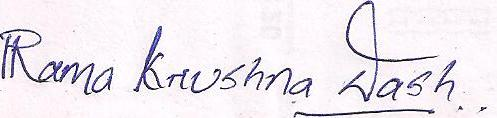 Rama Krushna Dash..